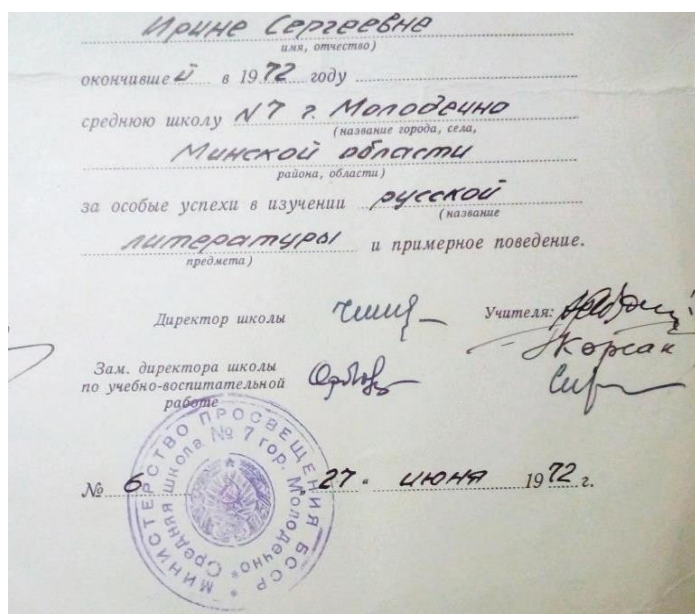 Ирине Сергеевне
имя, отчество)
окончившей в 1972 году
среднюю школу N7 г. Молодечно
(название города, села,
Минской области
района, области)
за особые успехи в изучении русской
(название
литературы и примерное поведение.
предмета)
Директор школы Учителя:
Корсак
Зам. директора школы
по учебно-воспитательной
работе
МИНИСТЕРСТВО ПРОСВЕЩЕНИЯ БССР
Средняя школа № 7 гор. Молодечно
№ 6 "27" июня 1972 г.